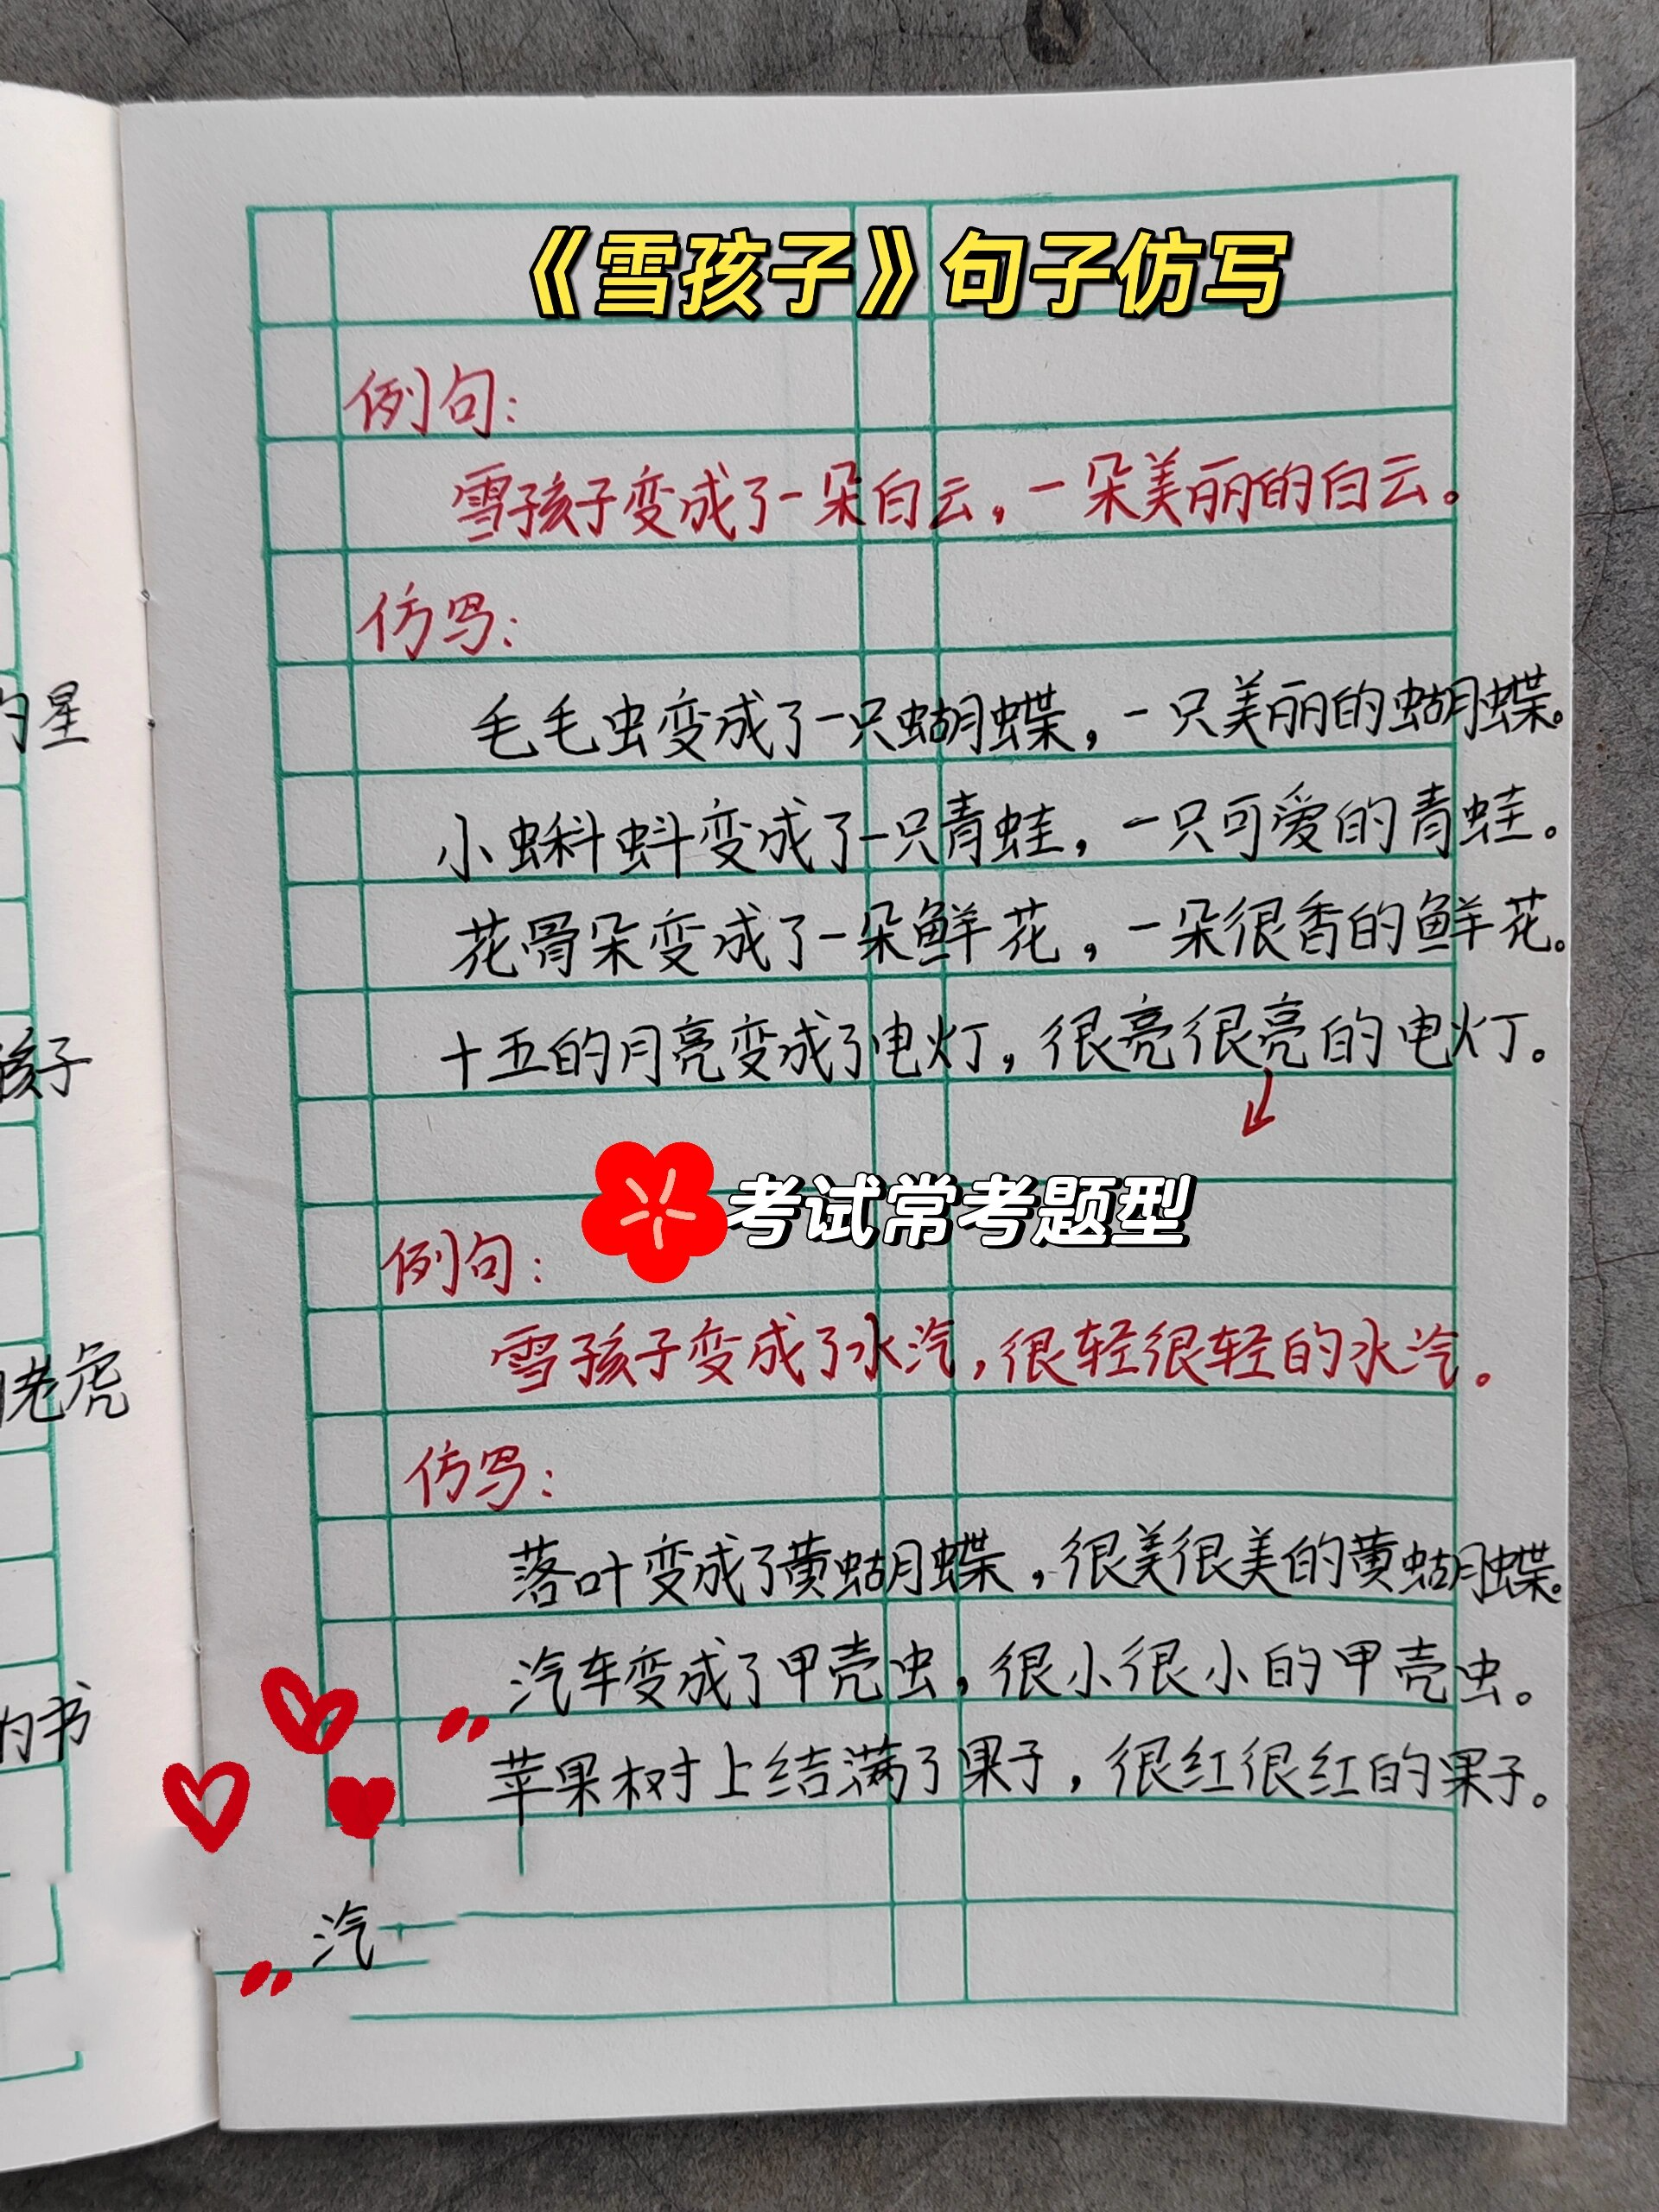 《雪孩子》句子仿写
例句:
雪孩子变成了一朵白云,一朵美丽的白云。
仿写:
毛毛虫变成了一只蝴蝶,一只美丽的蝴蝶。
小蝌蚪变成了一只青蛙,一只可爱的青蛙。
花骨朵变成了一朵鲜花,一朵很香的鲜花。
十五的月亮变成了电灯,很亮很亮的电灯。
考试常考题型
例句:
雪孩子变成了水汽,很轻很轻的水汽。
仿写:
落叶变成了黄蝴蝶,很美很美的黄蝴蝶。
汽车变成了甲壳虫,很小很小的甲壳虫。
苹果树上结满了果子,很红很红的果子。
汽
的星
孩子
老虎
的书